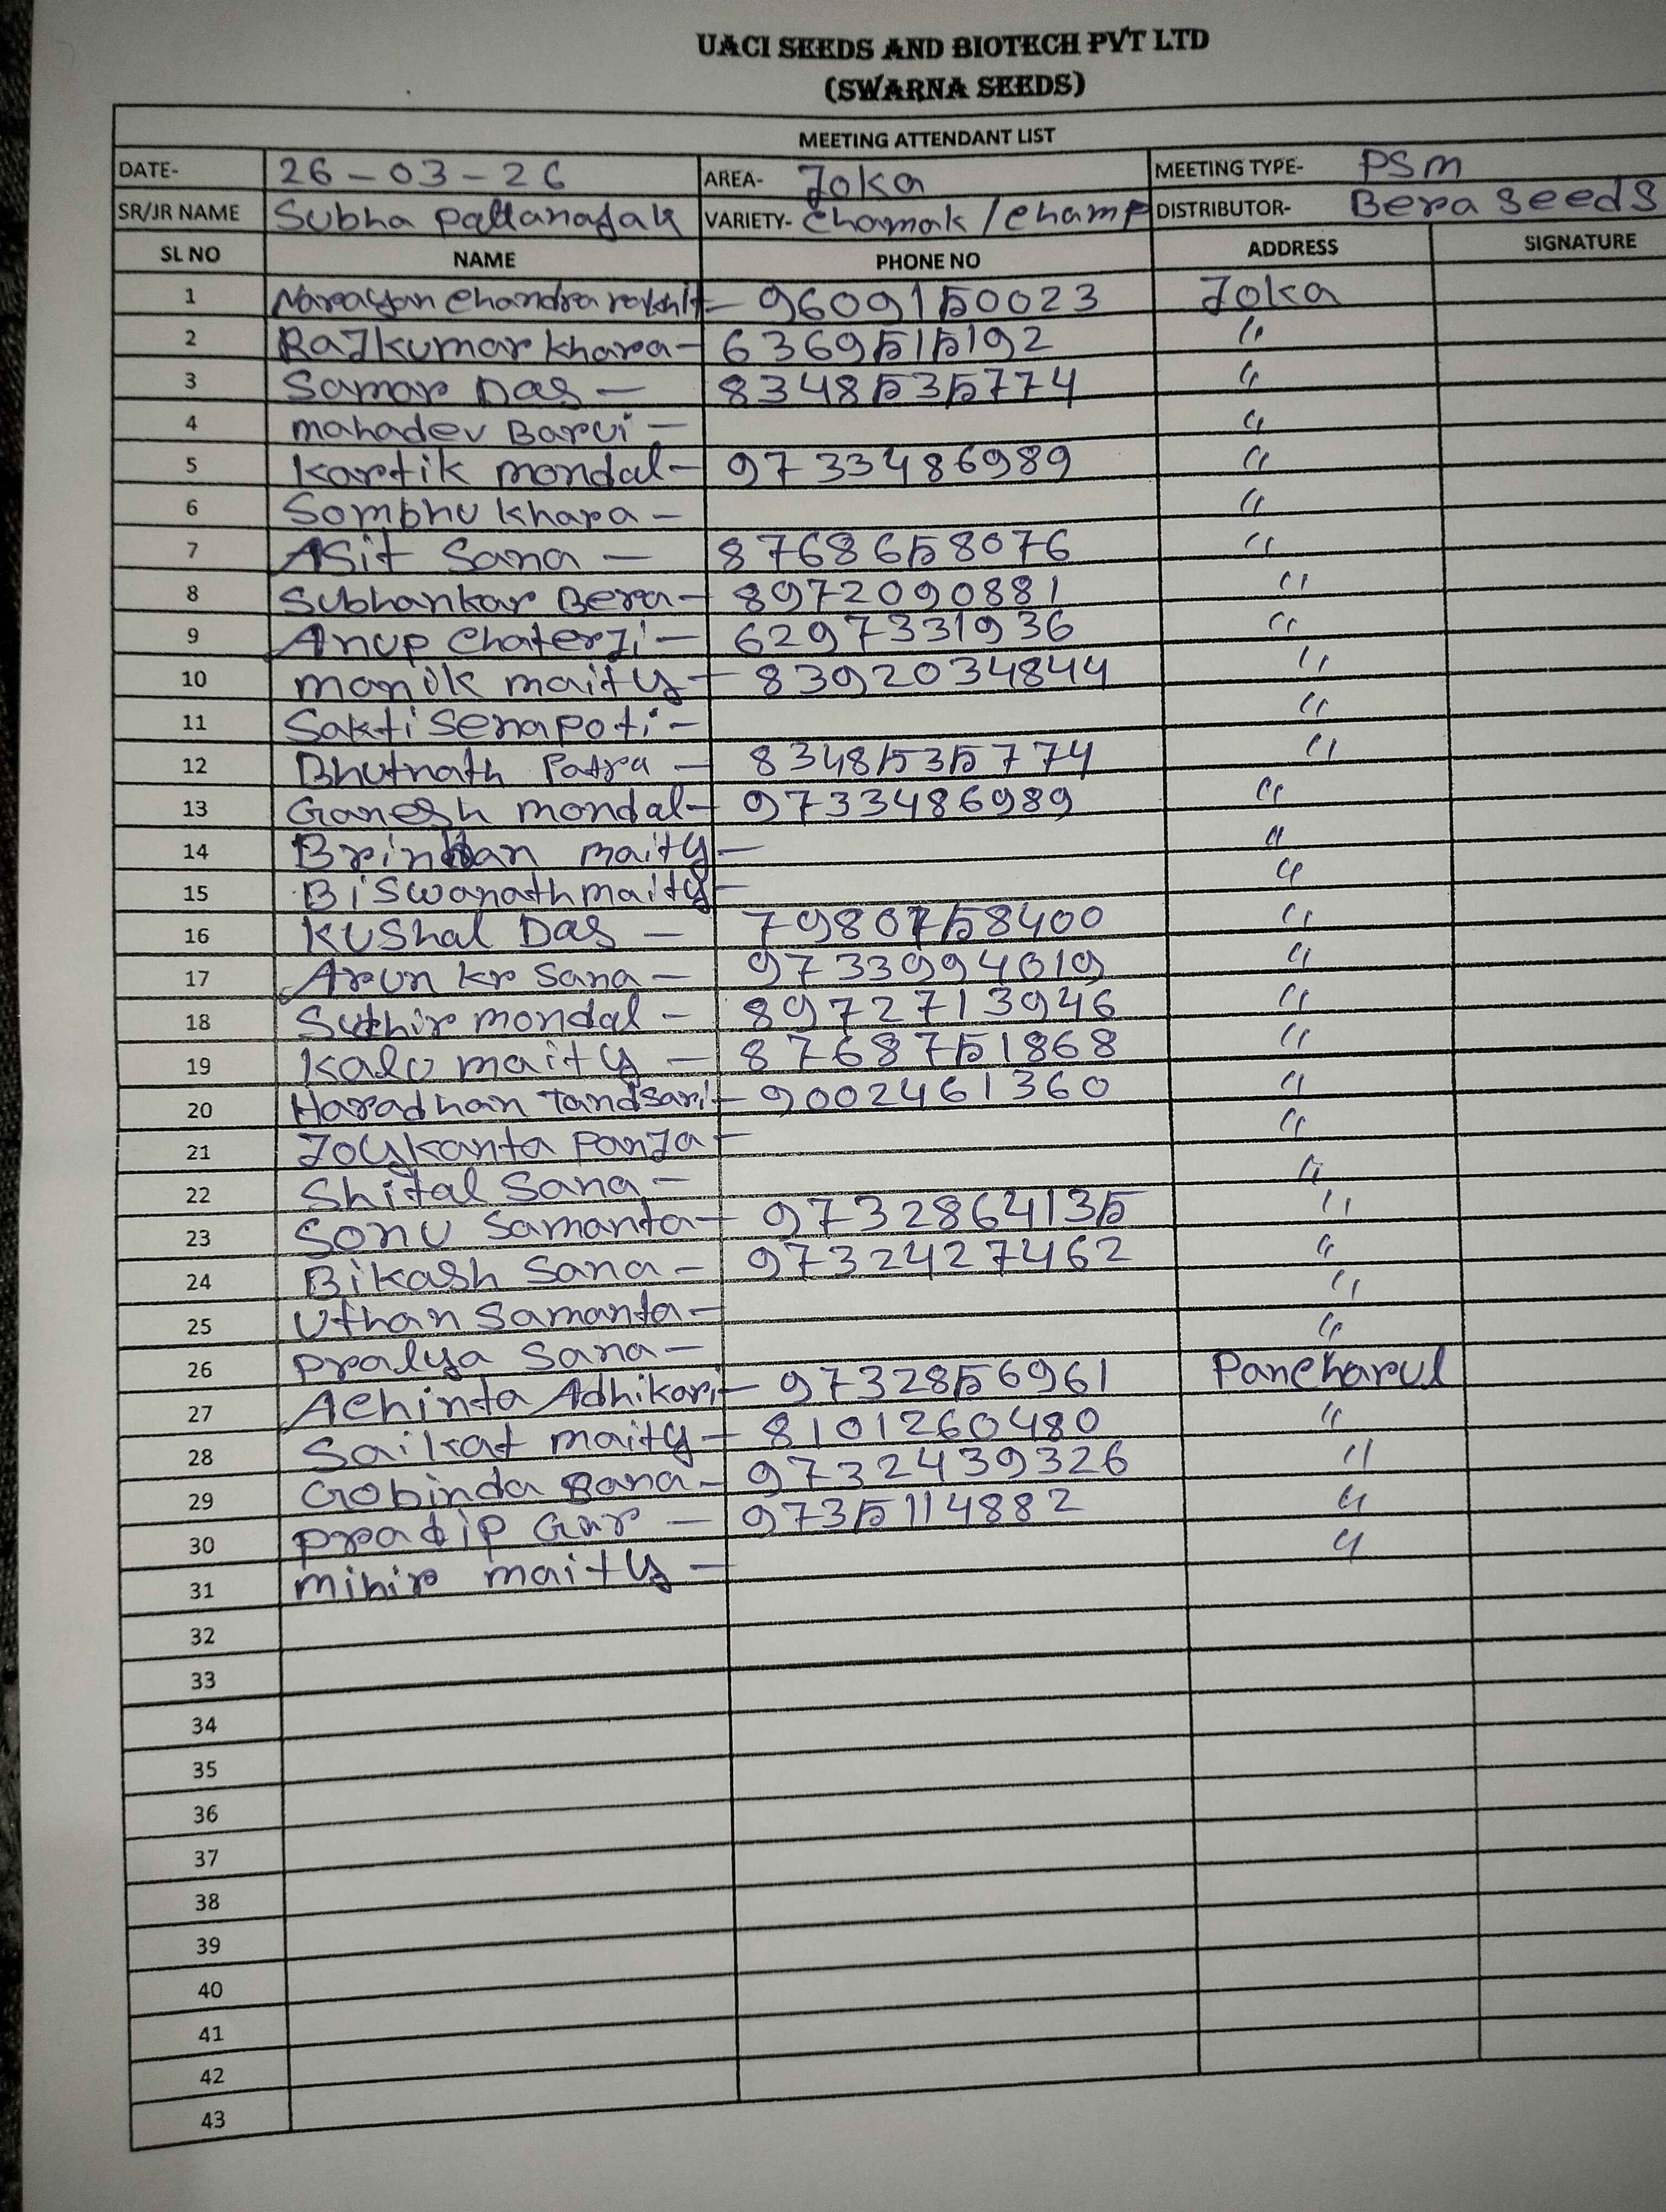 UACI SEEDS AND BIOTECH PVT LTD
(SWARNA SEEDS)
MEETING ATTENDANT LIST
DATE- 26-03-26 AREA- Joka MEETING TYPE- PSM
SR/JR NAME Subha Pattanayak VARIETY- Chamak / Champ DISTRIBUTOR- Bera Seeds
SL NO NAME PHONE NO ADDRESS SIGNATURE
1 Narayan Chandra rakshit - 9609150023 Joka
2 Rajkumar khara - 6369515192 "
3 Samar Das - 8348535774 "
4 mahadev Barui - "
5 kartik mondal - 9733486989 "
6 Sombhu khara - "
7 Asit Sana - 8768658076 "
8 Subhankar Bera - 8972090881 "
9 Anup Chaterji - 6297331936 "
10 manik maity - 8392034844 "
11 Sakti Senapoti - "
12 Bhutnath Patra - 8348535774 "
13 Ganesh mondal - 9733486989 "
14 maity - "
15 Biswanath maity - "
16 Kushal Das - 7980758400 "
17 Arun kr Sana - 9733994019 "
18 Suthir mondal - 8972713946 "
19 Kalu maity - 8768751868 "
20 Haradhan Tandsari - 9002461360 "
21 Joykanta Panja - "
22 Shital Sana - "
23 Sonu Samanta - 9732864135 "
24 Bikash Sana - 9732427462 "
25 Uthan Samanta - "
26 Pralya Sana - "
27 Achinta Adhikari - 9732856961 Pancharul
28 Saikat maity - 8101260480 "
29 Gobinda Sana - 9732439326 "
30 Pradip Gar - 9735114882 "
31 mihir maity - "
32
33
34
35
36
37
38
39
40
41
42
43